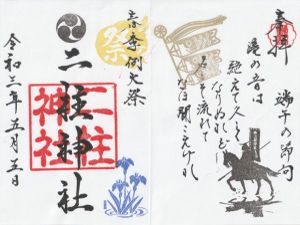 奉拝
端午の節句
滝の音は
絶えて久しく
なりぬれど
名こそ流れて
なほ聞こえけれ
春季例大祭
祭
二柱神社
二柱
神社
令和三年五月五日